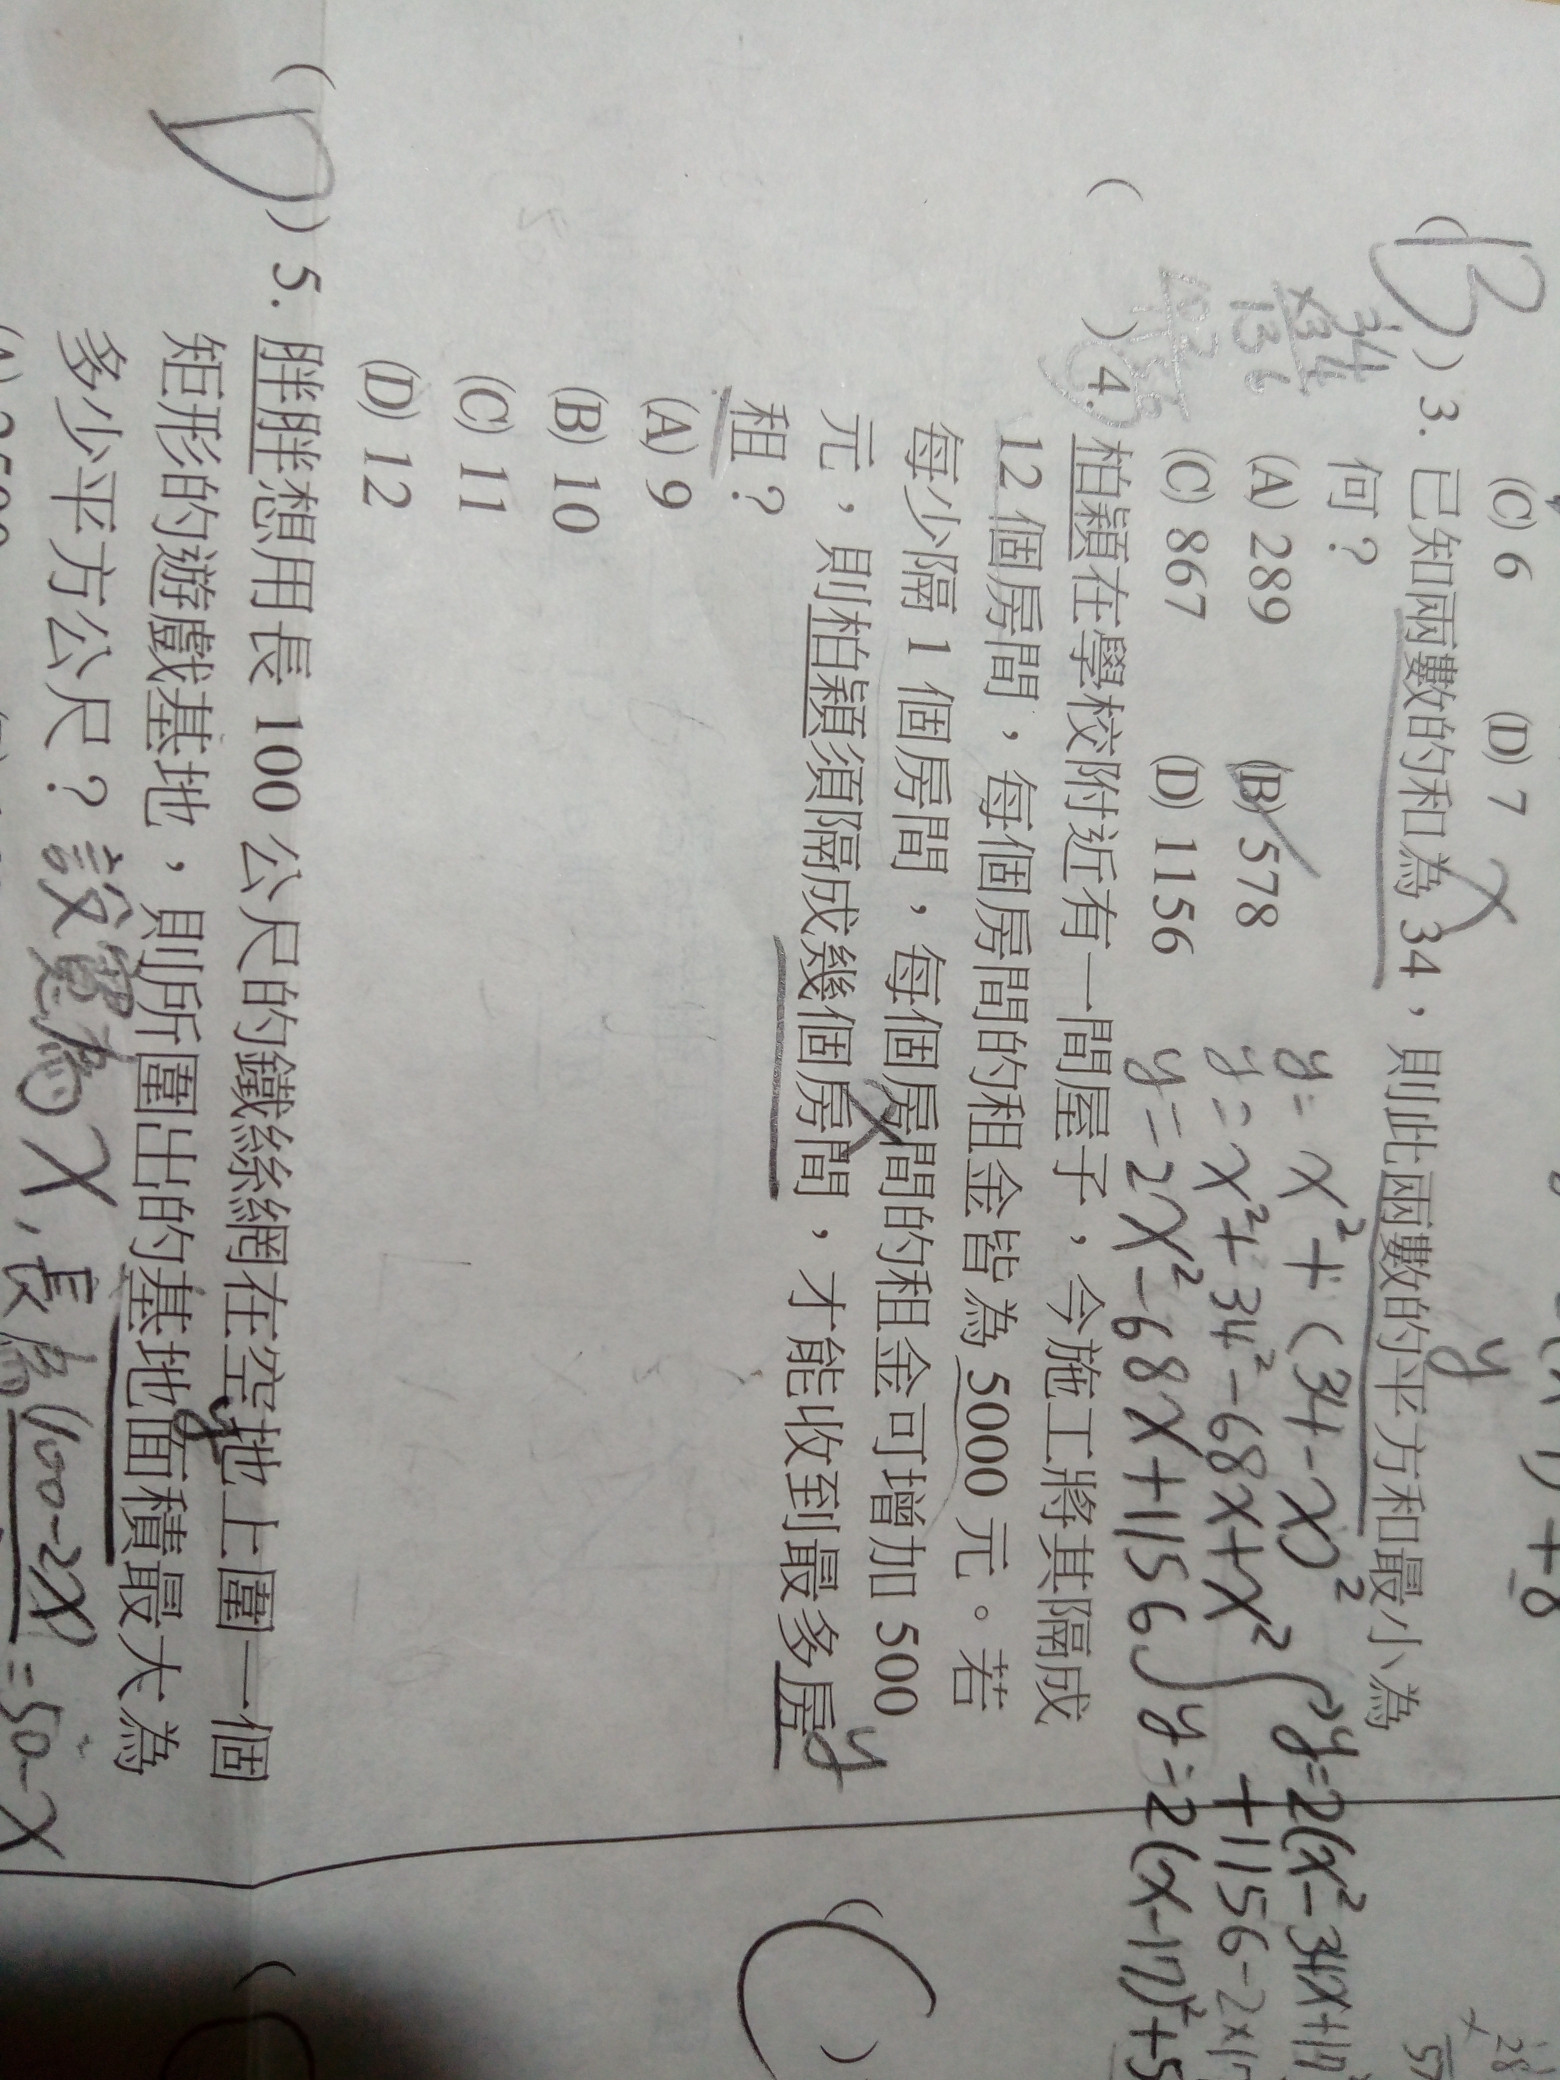 (C) 6 (D) 7
( B ) 3. 已知兩數的和為 34，則此兩數的平方和最小為
何？
(A) 289 (B) 578
(C) 867 (D) 1156
x
y
y = x²+(34-x)²
y = x²+34²-68x+x²
y = 2x²-68x+1156
y=2(x²-34x+17
+1156-2×17
y=2(x-17)²+5
34
×34
136
( ) 4. 柏穎在學校附近有一間屋子，今施工將其隔成
12 個房間，每個房間的租金皆為 5000 元。若
每少隔 1 個房間，每個房間的租金可增加 500
元，則柏穎須隔成幾個房間，才能收到最多房
租？
x
y
(A) 9
(B) 10
(C) 11
(D) 12
( D ) 5. 胖胖想用長 100 公尺的鐵絲網在空地上圍一個
矩形的遊戲基地，則所圍出的基地面積最大為
多少平方公尺？
y
設寬為x，長為(100-2x) =50-x
( C )